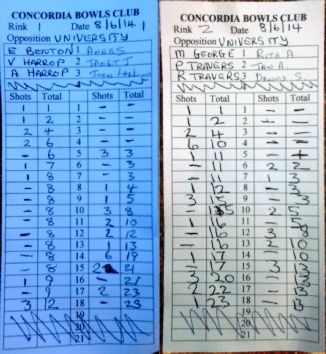 CONCORDIA BOWLS CLUB
Rink 1 Date 8/6/14
Opposition UNIVERSITY
E BENTON 1
V HARROP 2 JANET J
A HARROP 3
Shots Total Shots Total
1 1 1 - -
1 2 2 - -
2 4 3 - -
2 6 4 - -
- 6 5 3 3
1 7 6 - 3
1 8 7 - 3
- 8 8 1 4
- 8 9 1 5
- 8 10 3 8
- 8 11 2 10
- 8 12 2 12
- 8 13 1 13
- 8 14 6 19
- 8 15 2 21
1 9 16 - 21
- 9 17 2 23
3 12 18 - 23
19
20
21
CONCORDIA BOWLS CLUB
Rink 2 Date 8/6/14
Opposition UNIVERSITY
M GEORGE 1 RITA
P TRAVERS 2 JAN A
R TRAVERS 3 DENNIS S
Shots Total Shots Total
1 1 1 - -
1 2 2 - -
2 4 3 - -
6 10 4 - -
1 11 5 -
- 11 6 2
- 11 7 1 3
1 12 8 - 3
9 - 3
10 2 5
11
- 16 12 3
- 16 13 2 10
1 17 14 - 10
- 17 15 3
3 20 16
2 22 17 -
1 23 18 -
19
20
21